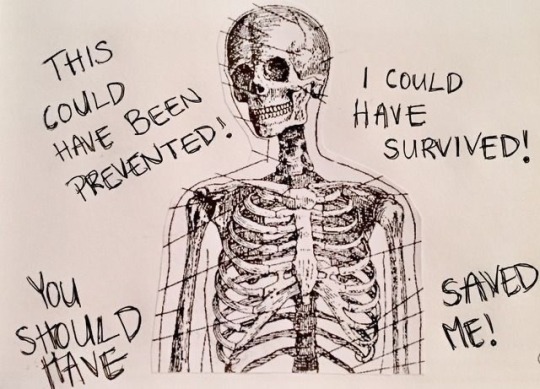 THIS
COULD
HAVE BEEN
PREVENTED!
I COULD
HAVE
SURVIVED!
YOU
SHOULD
HAVE
SAVED
ME!